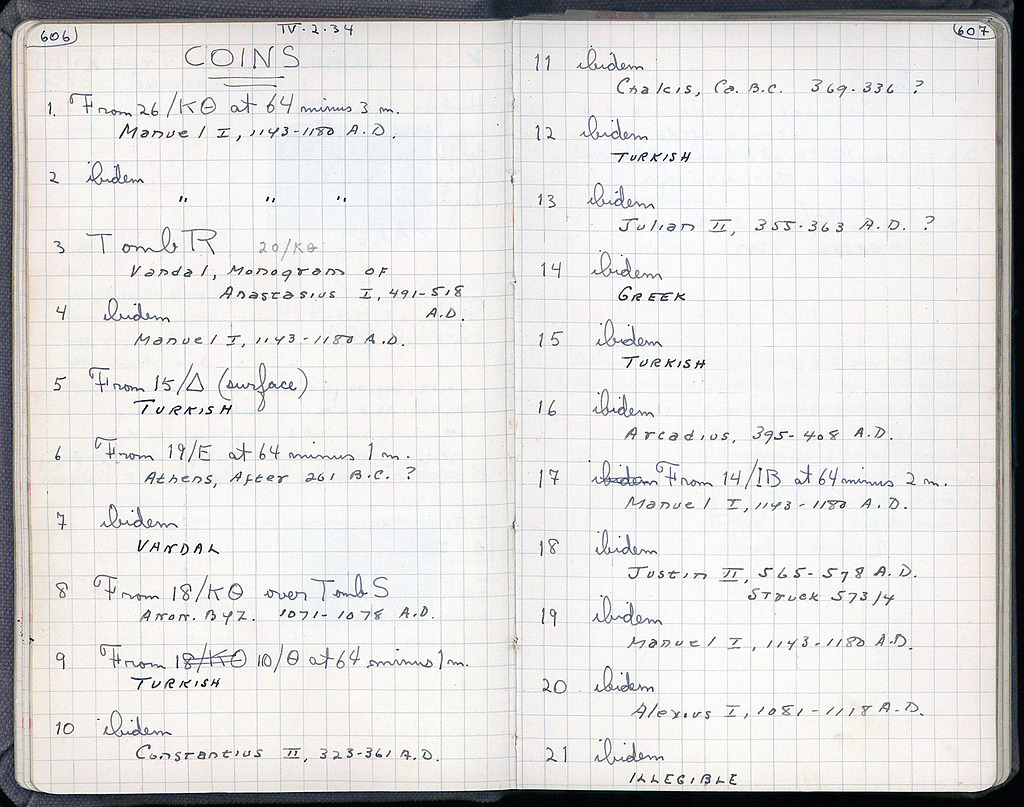 606
IV·2·34
COINS
1. From 26/KΘ at 64 minus 3 m.
Manuel I, 1143-1180 A.D.
2 ibidem
" " "
3 Tomb R 20/KΘ
Vandal, Monogram of
Anastasius I, 491-518
A.D.
4 ibidem
Manuel I, 1143-1180 A.D.
5 From 15/Δ (surface)
TURKISH
6 From 19/E at 64 minus 1 m.
Athens, After 261 B.C. ?
7 ibidem
VANDAL
8 From 18/KΘ over Tomb S
Anon. Byz. 1071-1078 A.D.
9 From 18/KΘ 10/Θ at 64 minus 1 m.
TURKISH
10 ibidem
Constantius II, 323-361 A.D.
607
11 ibidem
Chalcis, Ca. B.C. 369-336 ?
12 ibidem
TURKISH
13 ibidem
Julian II, 355-363 A.D. ?
14 ibidem
GREEK
15 ibidem
TURKISH
16 ibidem
Arcadius, 395-408 A.D.
17 ibidem From 14/IB at 64 minus 2 m.
Manuel I, 1143-1180 A.D.
18 ibidem
Justin II, 565-578 A.D.
Struck 573/4
19 ibidem
Manuel I, 1143-1180 A.D.
20 ibidem
Alexius I, 1081-1118 A.D.
21 ibidem
ILLEGIBLE